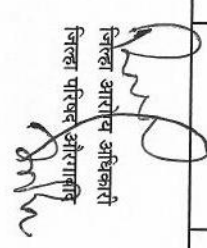 जिल्हा आरोग्य अधिकारी
जिल्हा परिषद औरंगाबाद